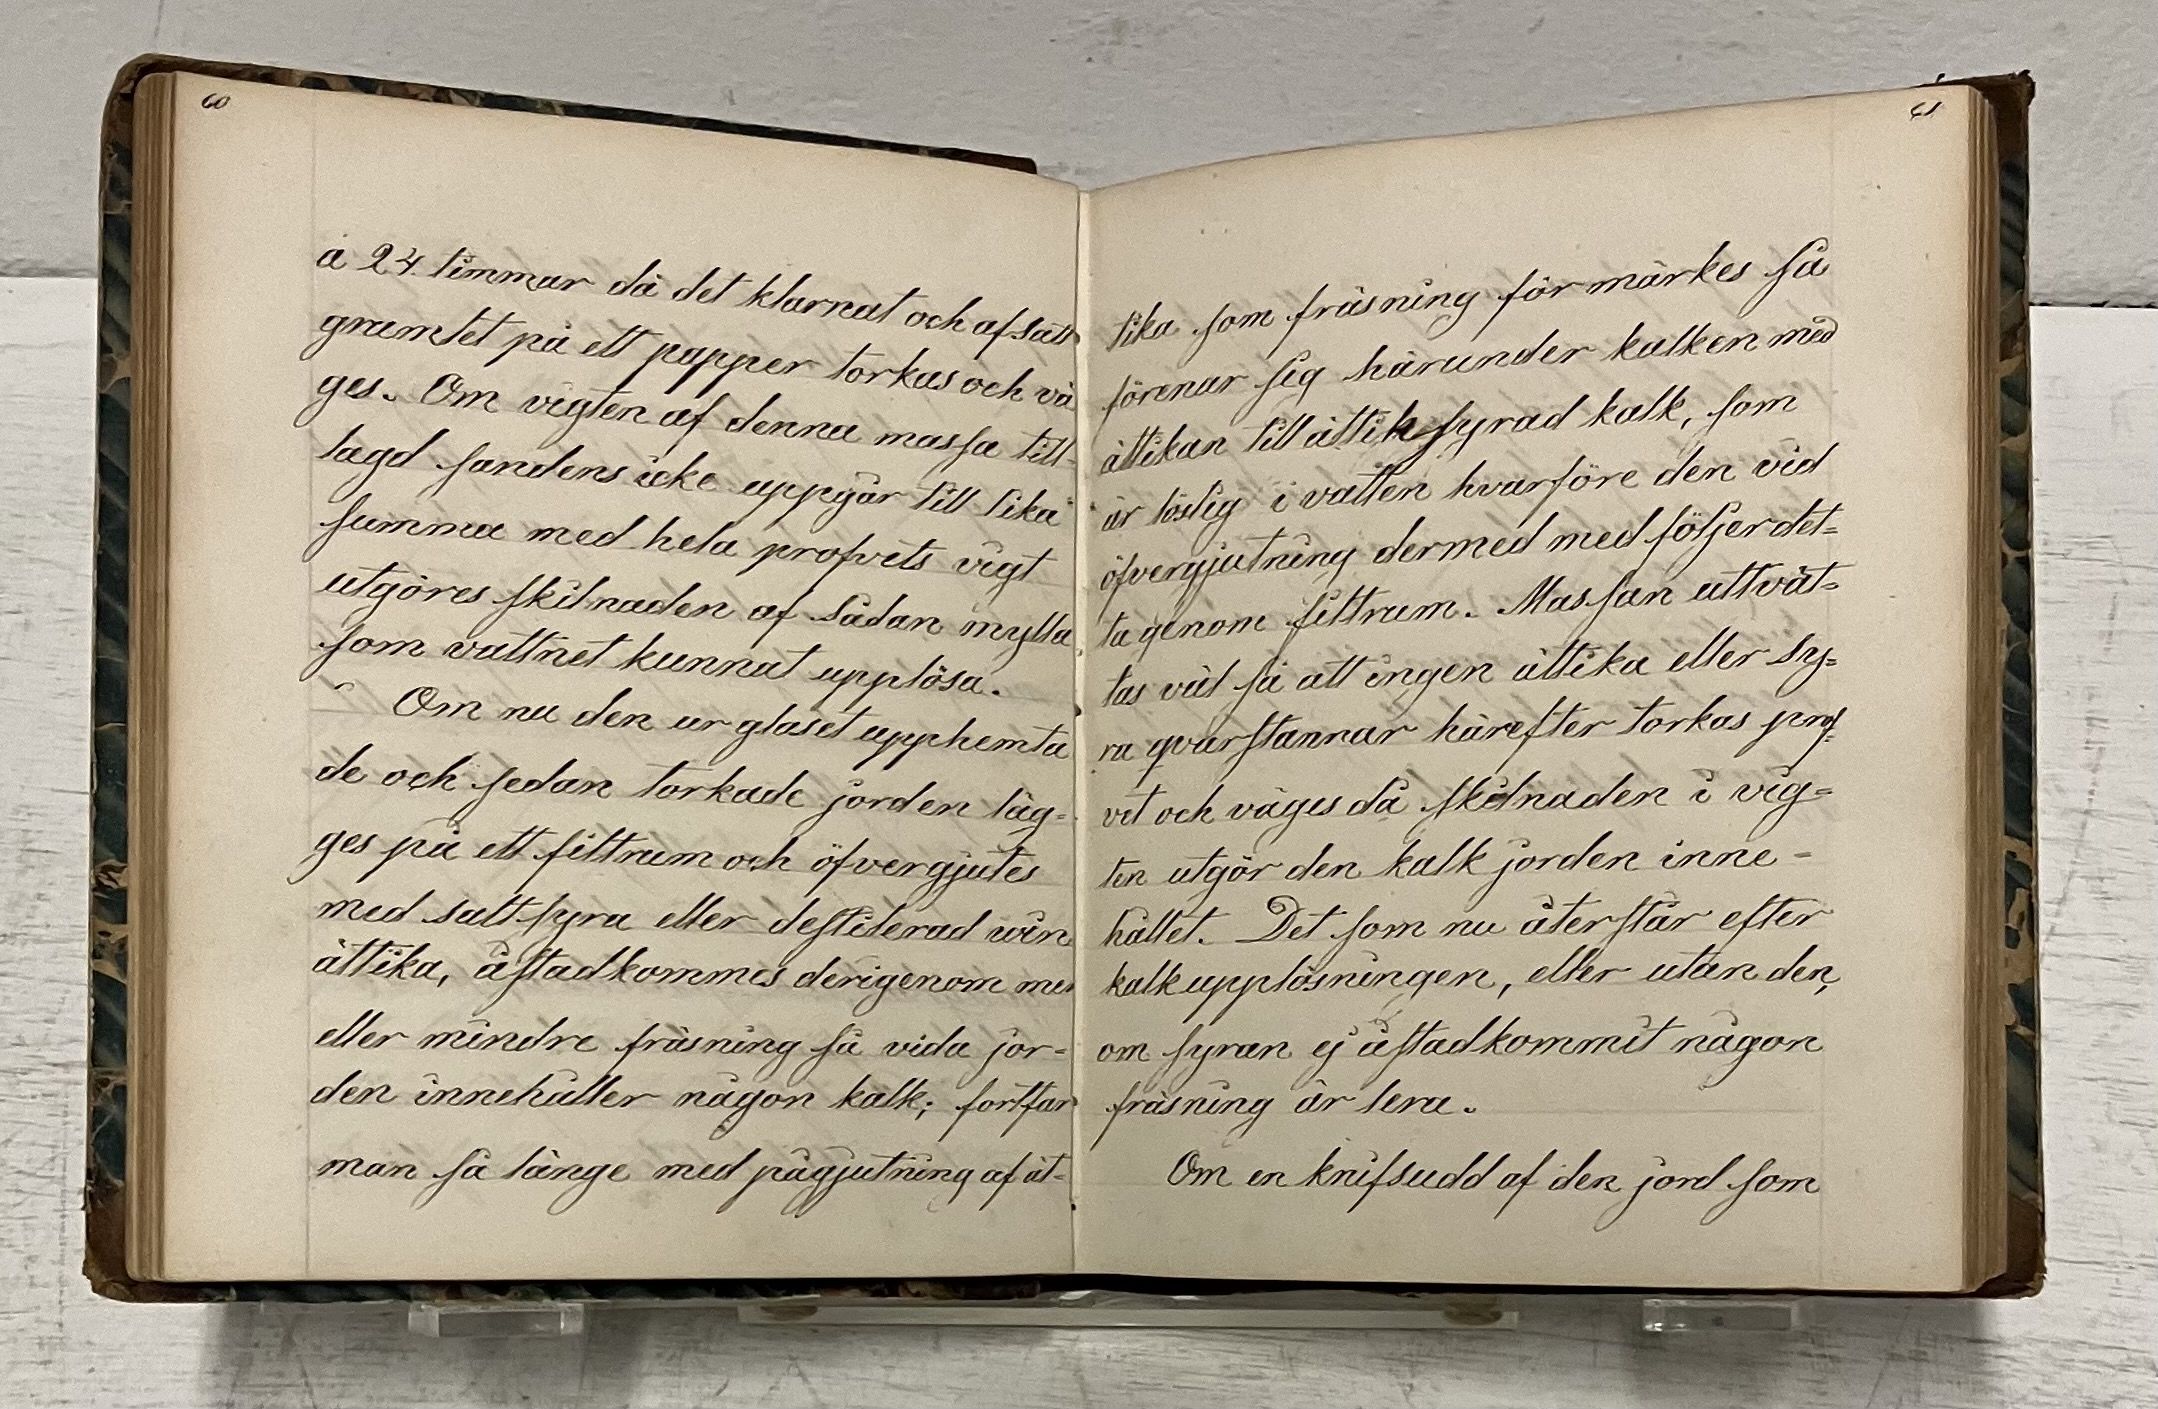 60
a 24 timmar då det klarnat och afsatt
grumlet på ett papper torkas och vä
ges. Om vigten af denna massa till-
lagd sandens icke uppgår till lika
summa med hela profvets vigt
utgöres skilnaden af sådan mylla,
som vattnet kunnat upplösa.
Om nu den ur glaset upphemta
de och sedan torkade jorden läg=
ges på ett filtrum och öfvergjutes
med saltsyra eller destilerad win
ättika, åstadkommes derigenom mer
eller mindre fräsning så vida jor=
den innehåller någon kalk; fortfar
man så länge med pågjutning af ät=
61
tika som fräsning förmärkes så
förenar sig härunder kalken med
ättikan till ättiksyrad kalk, som
är löslig i vatten hvarföre den vid
öfvergjutning dermed med följer det=
ta genom filtrum. Massan uttvät=
tas väl så att ingen ättika eller sy=
ra qvarstannar härefter torkas prof=
vet och väges då skilnaden i vig=
ten utgör den kalk jorden inne=
hållet. Det som nu återstår efter
kalkupplösningen, eller utan den,
om syran ej åstadkommit någon
fräsning är lera.
Om en knifsudd af den jord som